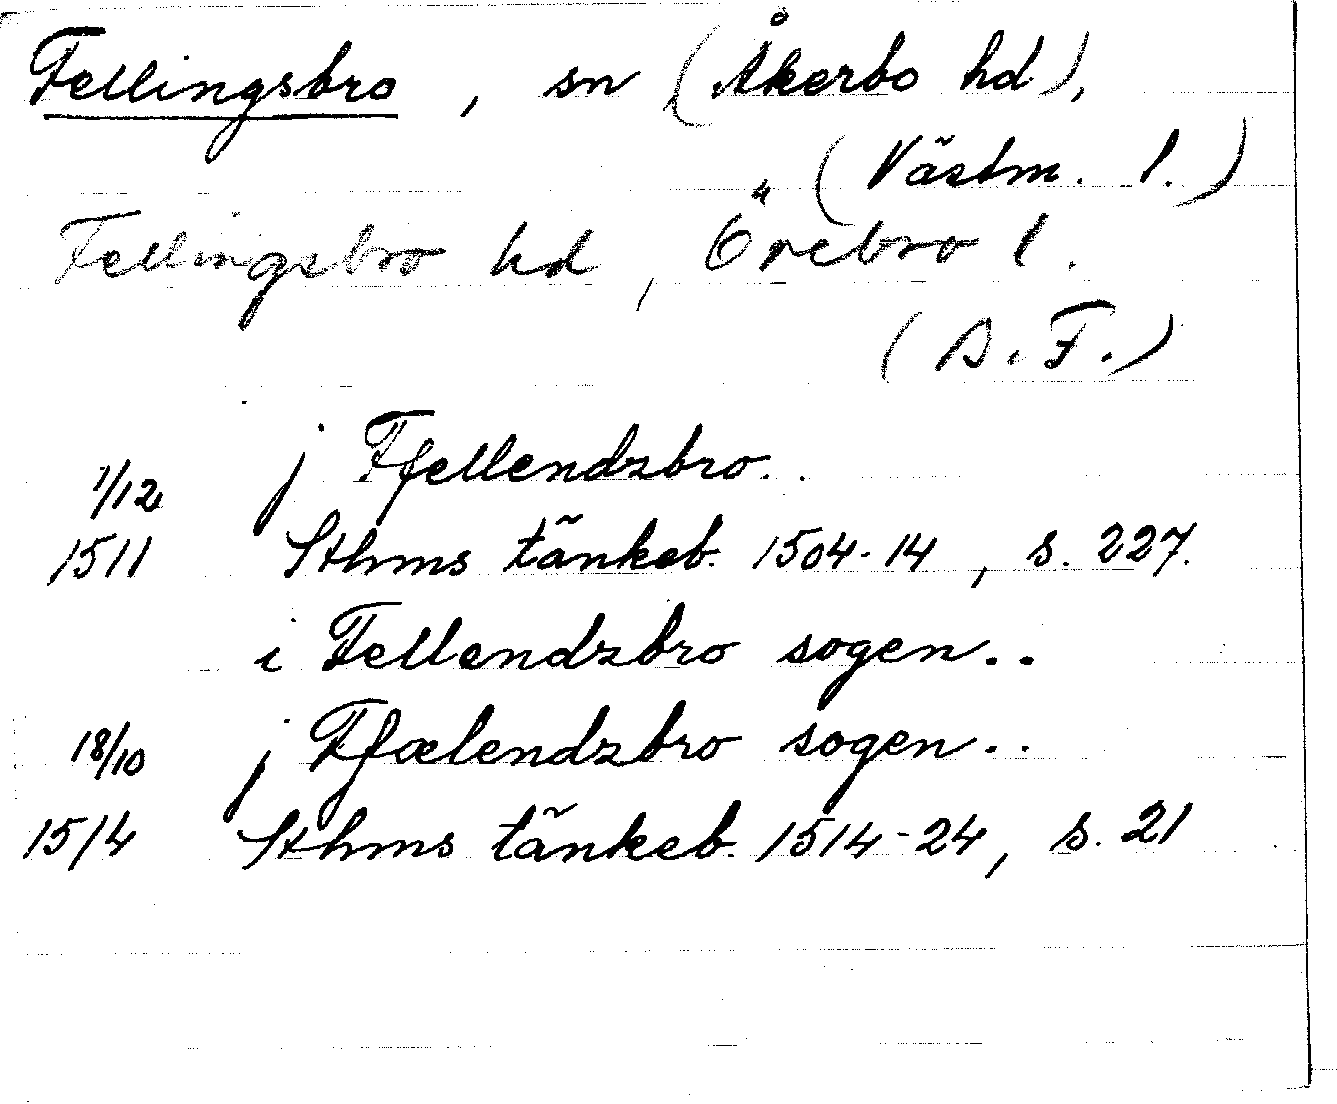 Fellingsbro, sn (Åkerbo hd),
(Västm. l.)
Fellingsbro hd, Örebro l.
(D.F.)
j Ffellendzbro..
1/12
1511 Sthms tänkeb. 1504-14, s. 227.
i Fellendzbro sogen..
18/10 j Ffælendzbro sogen..
1514 Sthms tänkeb. 1514-24, s. 21